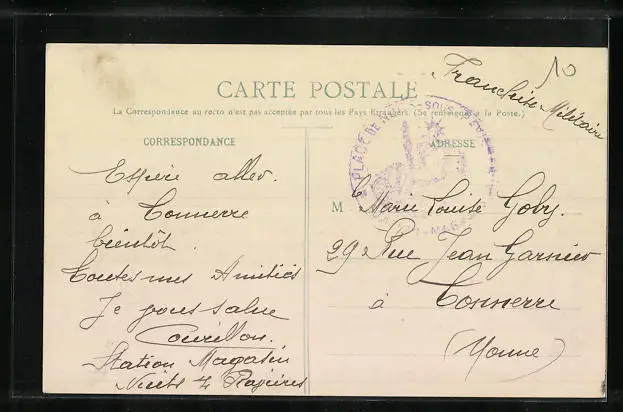 10
Franchise Militaire
CARTE POSTALE
La Correspondance au recto n'est pas acceptée par tous les Pays Etrangers (Se renseigner à la Poste.)
CORRESPONDANCE
ADRESSE
PLACE DE SOUS
Espère aller
à Tonnerre
bientôt.
Toutes mes Amitiés
Je vous salue
Station Magasin
Nuits
M Marie Louise Goby.
29 Rue Jean Garnier
à Tonnerre
(Yonne)